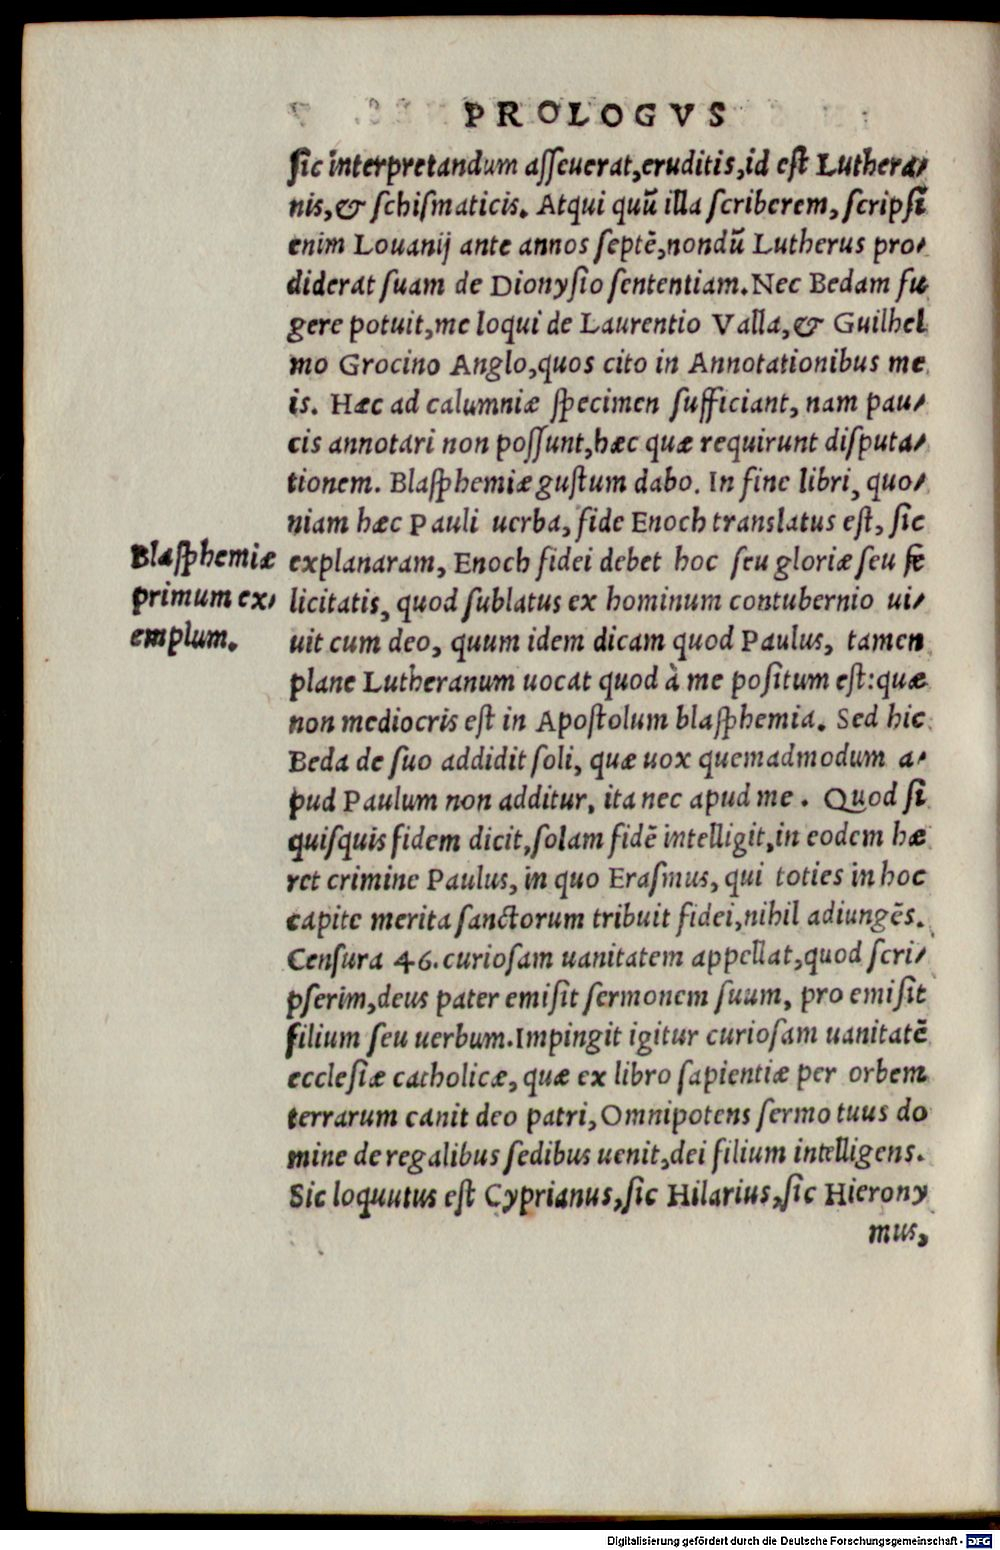 PROLOGVS
sic interpretandum asseuerat, eruditis, id est Luthera-
nis, & schismaticis. Atqui quū illa scriberem, scripsi
enim Louanij ante annos septē, nondū Lutherus pro-
diderat suam de Dionysio sententiam. Nec Bedam fu
gere potuit, me loqui de Laurentio Valla, & Guilhel
mo Grocino Anglo, quos cito in Annotationibus me
is. Hæc ad calumniæ specimen sufficiant, nam pau-
cis annotari non possunt, hæc quæ requirunt disputa-
tionem. Blasphemiæ gustum dabo. In fine libri, quo-
niam hæc Pauli uerba, fide Enoch translatus est, sic
Blasphemiæ
primum ex-
emplum.
explanaram, Enoch fidei debet hoc seu gloriæ seu fe
licitatis, quod sublatus ex hominum contubernio ui-
uit cum deo, quum idem dicam quod Paulus, tamen
plane Lutheranum uocat quod à me positum est: quæ
non mediocris est in Apostolum blasphemia. Sed hic
Beda de suo addidit soli, quæ uox quemadmodum a-
pud Paulum non additur, ita nec apud me. Quod si
quisquis fidem dicit, solam fidē intelligit, in eodem hæ
ret crimine Paulus, in quo Erasmus, qui toties in hoc
capite merita sanctorum tribuit fidei, nihil adiungēs.
Censura 46. curiosam uanitatem appellat, quod scri-
pserim, deus pater emisit sermonem suum, pro emisit
filium seu uerbum. Impingit igitur curiosam uanitatē
ecclesiæ catholicæ, quæ ex libro sapientiæ per orbem
terrarum canit deo patri, Omnipotens sermo tuus do
mine de regalibus sedibus uenit, dei filium intelligens.
Sic loquutus est Cyprianus, sic Hilarius, sic Hierony
mus,
Digitalisierung gefördert durch die Deutsche Forschungsgemeinschaft - DFG